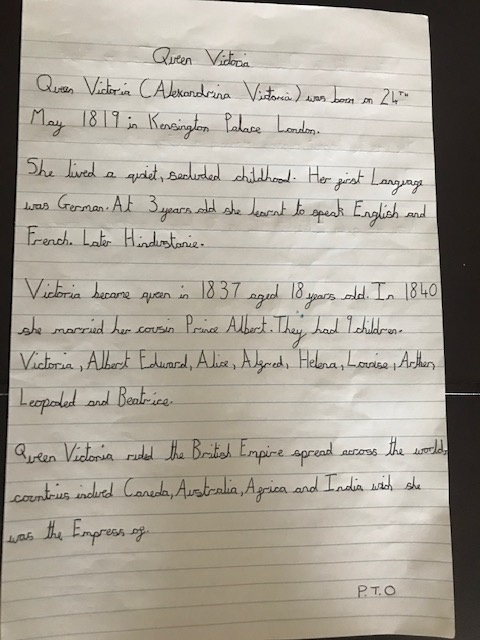 Queen Victoria
Queen Victoria (Alexandrina Victoria) was born on 24TH
May 1819 in Kensington Palace London.
She lived a quiet, secluded childhood. Her first Language
was German. At 3 years old she learnt to speak English and
French. Later Hindustanie.
Victoria became queen in 1837 aged 18 years old. In 1840
she married her cousin Prince Albert. They had 9 children.
Victoria, Albert Edward, Alice, Alfred, Helena, Louise, Arther,
Leopoled and Beatrice.
Queen Victoria ruled the British Empire spread across the world.
countries inclued Caneda, Australia, Africa and India wich she
was the Empress of
P.T.O